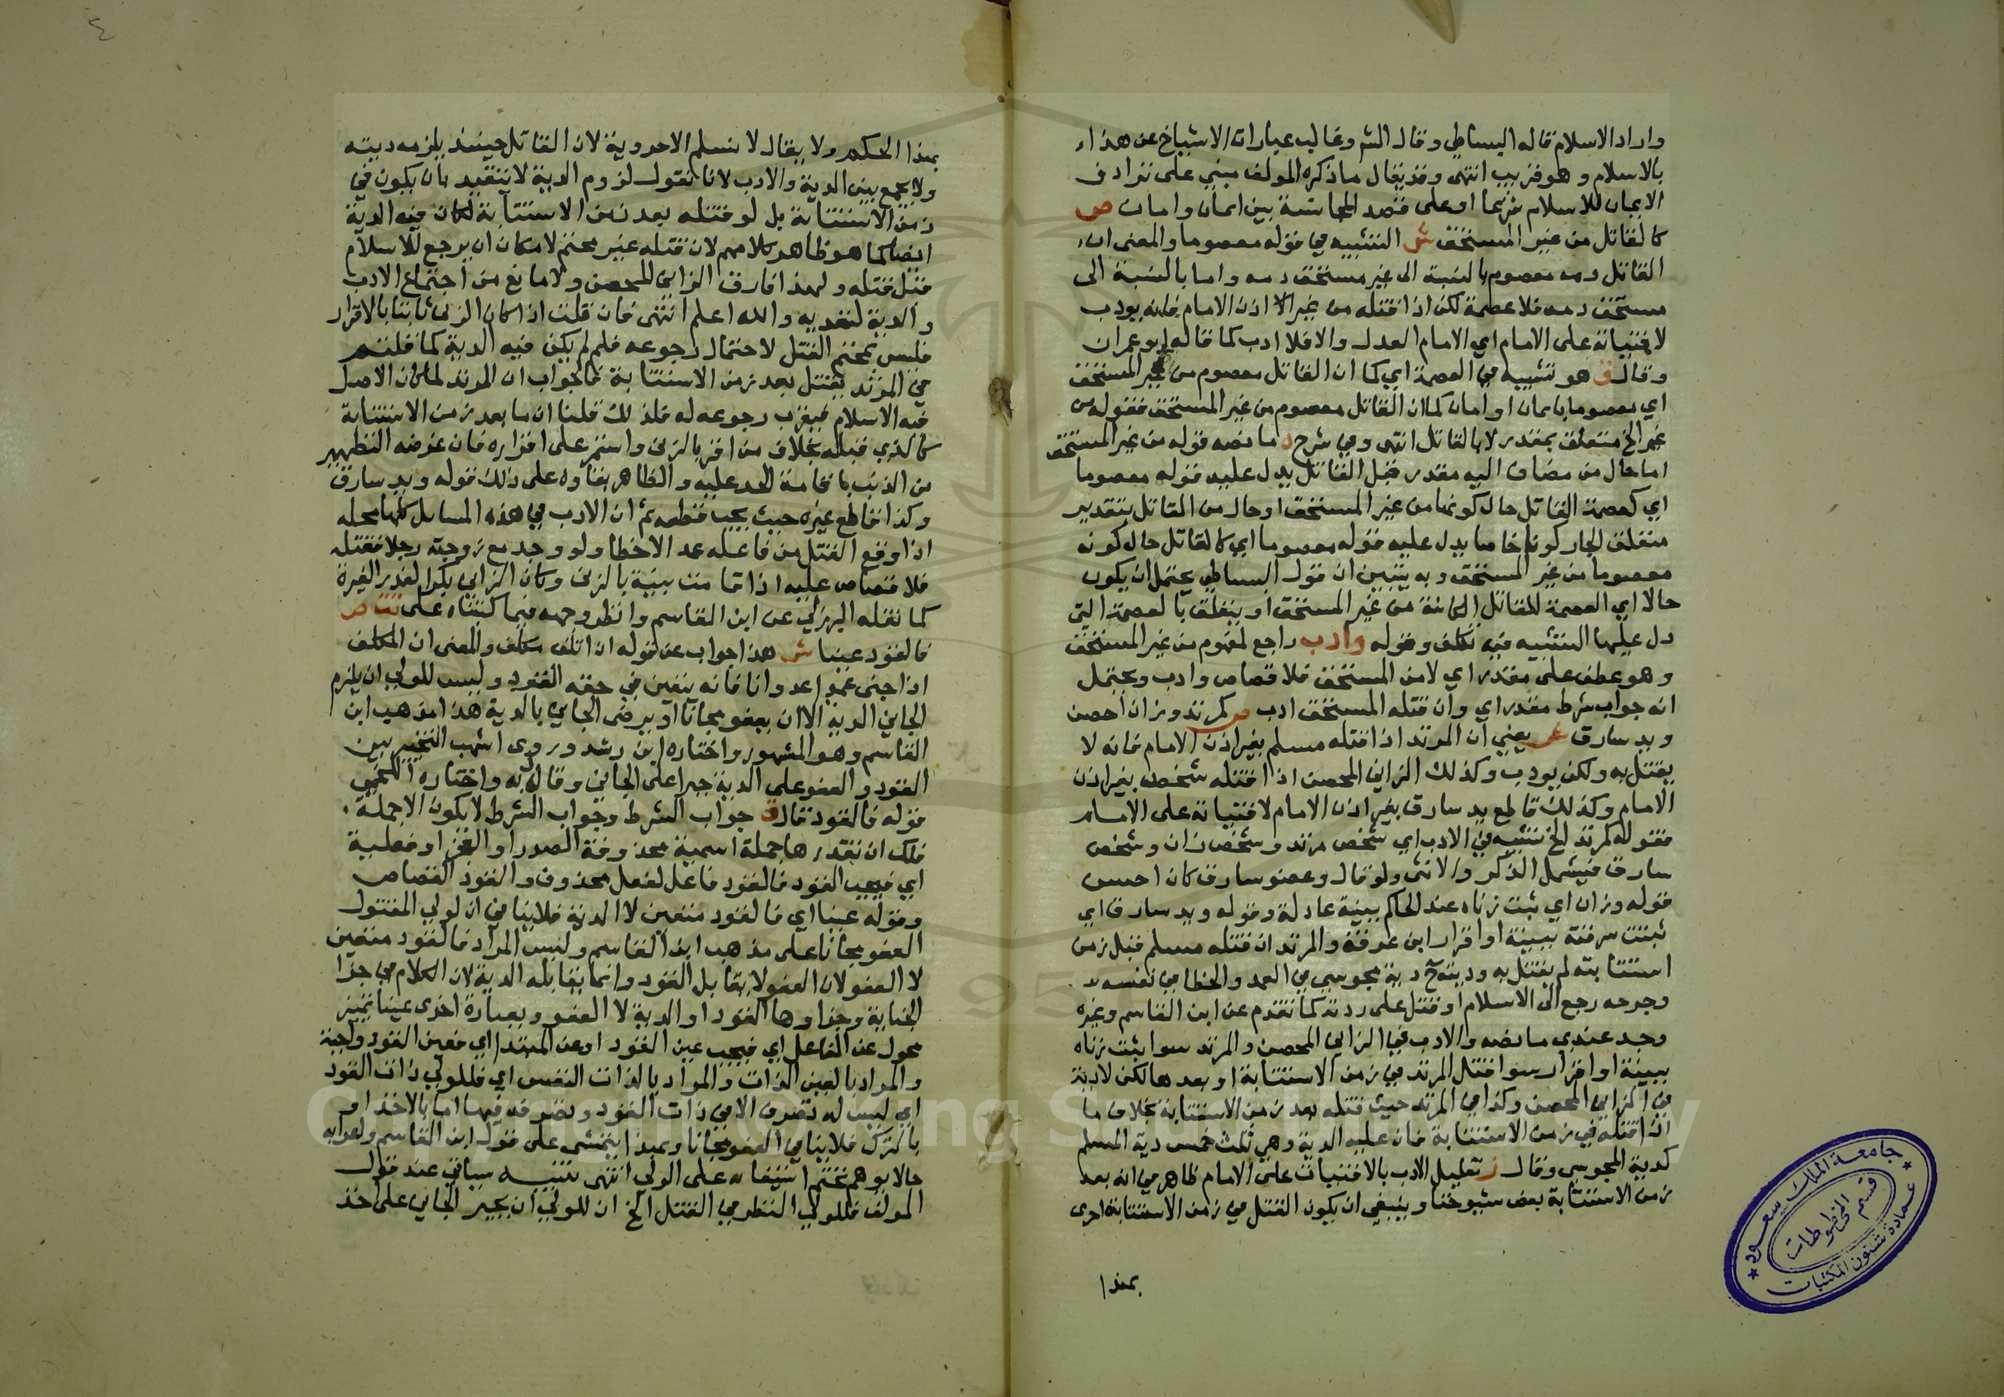 واراد الاسلام قاله البساطي وقال الشر وغالب عبارات الاشياخ عن هذا
بالاسلام وهو قريب انتهى وقد يقال ما ذكره المولف مبني على ترادف
الايمان للاسلام شرعا او على قصد المجانسة بين ايمان وامان ص
كالقاتل من غير المستحق ش التشبيه في قوله معصوما والمعنى ان
القاتل دمه معصوم بالنسبة الى غير مستحق دمه واما بالنسبة الى
مستحق دمه فلا عصمة لكن اذا قتله من غير اذن الامام فانه يودب
لافتياته على الامام اي الامام العدل والا فلا ادب كما قاله ابو عمران
وقال ق هو تشبيه في العصمة اي كما ان القاتل معصوم من غير المستحق
اي معصوما بايمان او امان كما ان القاتل معصوم من غير المستحق فقوله من
غير الخ متعلق بمقدر لا بالقاتل انتهى وفي شرح د ما نصه قوله من غير المستحق
اما حال من مضاف اليه مقدر قبل القاتل يدل عليه قوله معصوما
اي كعصمة القاتل حال كونها من غير المستحق او حال من القاتل بتقدير
متعلق الجار كونا خاصا يدل عليه قوله معصوما اي كالقاتل حال كونه
معصوما من غير المستحق وبه يتبين ان قول البساطي يحتمل ان يكون
حالا اي العصمة للقاتل الكائنة من غير المستحق او يتعلق بالعصمة التي
دل عليها التشبيه فيه تكلف وقوله وادب راجع لمفهوم من غير المستحق
وهو عطف على مقدر اي لا من المستحق فلا قصاص وادب ويحتمل
انه جواب شرط مقدر اي وان قتله المستحق ادب ص كمرتد وزان احصن
ويد سارق ش يعني ان المرتد اذا قتله مسلم بغير اذن الامام فانه لا
يقتل به ولكن يودب وكذلك الزاني المحصن اذا قتله شخص بغير اذن
الامام وكذلك قاطع يد سارق بغير اذن الامام لافتياته على الامام
فقوله كمرتد الخ تشبيه في الادب اي شخص مرتد وشخص زان وشخص
سارق فيشمل الذكر والانثى ولو قال وعضو سارق كان احسن
قوله وزان اي ثبت زناه عند الحاكم ببينة عادلة وقوله ويد سارق اي
ثبتت سرقته ببينة او اقرار ابن عرفة والمرتد ان قتله مسلم قبل زمن
استتابته لم يقتل به وديته دية مجوسي في العمد والخطا في نفسه
وجرحه رجع الى الاسلام او قتل على ردته كما تقدم عن ابن القاسم وغيره
وجد عندي ما نصه والادب في الزاني المحصن والمرتد سوا ثبت زناه
ببينة او اقرار سوا قتل المرتد في زمن الاستتابة او بعدها لكن لا دية
في الزاني المحصن وكذا في المرتد حيث قتله بعد زمن الاستتابة بخلاف ما
اذا قتله في زمن الاستتابة فان عليه الدية وهي ثلث خمس دية المسلم
كدية المجوسي وقال ز تعليل الادب بالافتيات على الامام ظاهر في انه بعد
زمن الاستتابة بعض شيوخنا وينبغي ان يكون القتل في زمن الاستتابة احرى
بهذا
٤
بهذا الحكم ولا يقال لا نسلم الاحروية لان القاتل حينئذ يلزمه ديته
ولا يجمع بين الدية والادب لانا نقول لزوم الدية لا يتقيد بان يكون في
زمن الاستتابة بل لو قتله بعد زمن الاستتابة لكان فيه الدية
ايضا كما هو ظاهر كلامهم لان قتله غير محتم لامكان ان يرجع للاسلام
قبل قتله ولهذا فارق الزاني المحصن ولا مانع من اجتماع الادب
والدية لتعديه والله اعلم انتهى فان قلت اذا كان الزنى ثابتا بالاقرار
فليس بمحتم القتل لاحتمال رجوعه فلم لم يكن فيه الدية كما قلتم
في المرتد يقتل بعد زمن الاستتابة فالجواب ان المرتد لما كان الاصل
فيه الاسلام فيقرب رجوعه له فلذلك قلنا ان ما بعد زمن الاستتابة
كالذي قبله بخلاف من اقر بالزنى واستمر على اقراره فان غرضه التطهير
من الذنب باقامة الحد عليه والظاهر بقاوه على ذلك قوله ويد سارق
وكذا قاطع غيره حيث يجب قطعه ثم ان الادب في هذه المسايل كلها محله
اذا وقع القتل من فاعله عمدا لا خطا ولو وجد مع زوجته رجلا فقتله
فلا قصاص عليه اذا قامت بينة بالزنى وكان الزاني بكرا لعذر الغيرة
كما نقله البرزلي عن ابن القاسم وانظر وجهه فيما كتبناه على تت ص
فالقود عينا ش هذا جواب عن قوله ان اتلف مكلف والمعنى ان المكلف
اذا جنى عمدا عدوانا فانه يتعين في حقه القود وليس للولي ان يلزم
الجاني الدية الا ان يعفو مجانا او يرضى الجاني بالدية هذا مذهب ابن
القاسم وهو المشهور واختاره ابن رشد وروى اشهب التخيير بين
القود والعفو على الدية جبرا على الجاني وقال به واختاره اللخمي
قوله فالقود قال ق جواب الشرط وجواب الشرط لا يكون الا جملة
فلك ان تقدرها جملة اسمية محذوفة الصدر او العجز او فعلية
اي فيجب القود فالقود فاعل لفعل محذوف والقود القصاص
وقوله عينا اي فالقود متعين لا الدية فلا ينافي ان لولي المقتول
العفو مجانا على مذهب ابن القاسم وليس المراد فالقود متعين
لا العفو لان العفو لا يقابل القود وانما يقابله الدية لان الكلام في جزا
الجناية وجزاوها القود او الدية لا العفو وبعبارة اخرى عينا تمييز
محول عن الفاعل اي فيجب عين القود او عن المبتدا اي فعين القود واجبة
والمراد بالعين الذات والمراد بالذات النفس اي فللولي ذات القود
اي ليس له تصرف الا في ذات القود وتصرفه فيها اما بالاخذ او
بالترك فلا ينافي العفو مجانا وبهذا يتمشى على قول ابن القاسم واعرابه
حالا يوهم تحتم استيفائه على الولي انتهى تنبيه سياتي عند قول
المولف فللولي النظر في القتل الخ ان للولي ان يجبر الجاني على اخذ
جامعة الملك سعود
قسم المخطوطات
عمادة شئون المكتبات